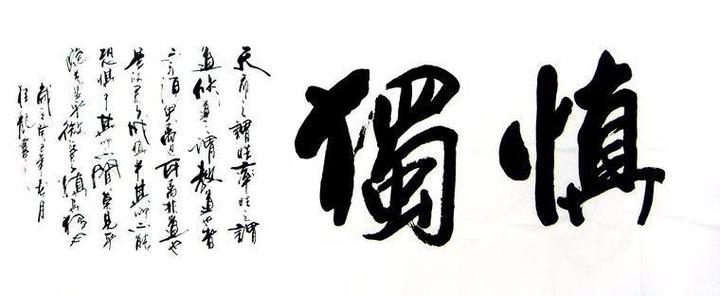 慎獨
天命之謂性率性之謂
道修道之謂教道也者
不可須臾離可離非道也
是故君子戒慎乎其所不
恐懼乎其所不聞莫見乎
隱莫顯乎微
年 月